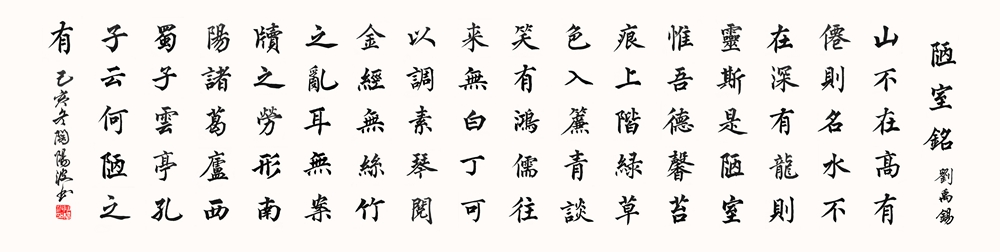 陋室銘 劉禹錫
山不在高有
僊則名水不
在深有龍則
靈斯是陋室
惟吾德馨苔
痕上階緑草
色入簾青談
笑有鴻儒往
来無白丁可
以調素琴閱
金經無絲竹
之亂耳無案
牘之勞形南
陽諸葛廬西
蜀子雲亭孔
子云何陋之
有 冬陶陽波书